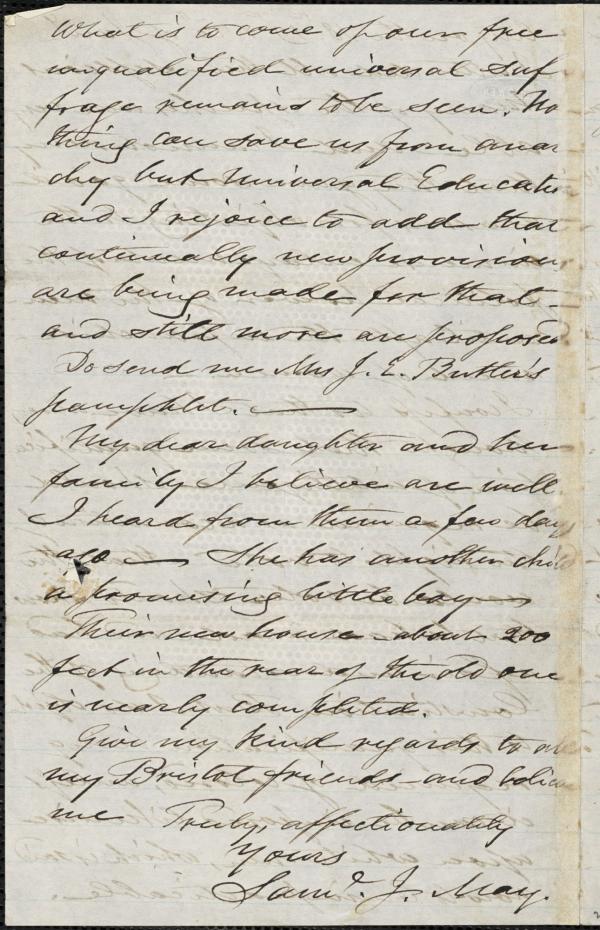 What is to come of our free
unqualified universal suf
frage remains to be seen. No
thing can save us from anar
chy but Universal Educatio
and I rejoice to add that
continually new provisions
are being made for that -
and still more are proposed
Do send me Mrs J. E. Butler's
pamphlet. —
My dear daughter and her
family I believe are well.
I heard from them a few days
ago — She has another child
a promising little boy —
Their new house - about 200
feet in the rear of the old one
is nearly completed.
Give my kind regards to all
my Bristol friends - and believe
me Truly, affectionately
Yours
Saml. J. May.